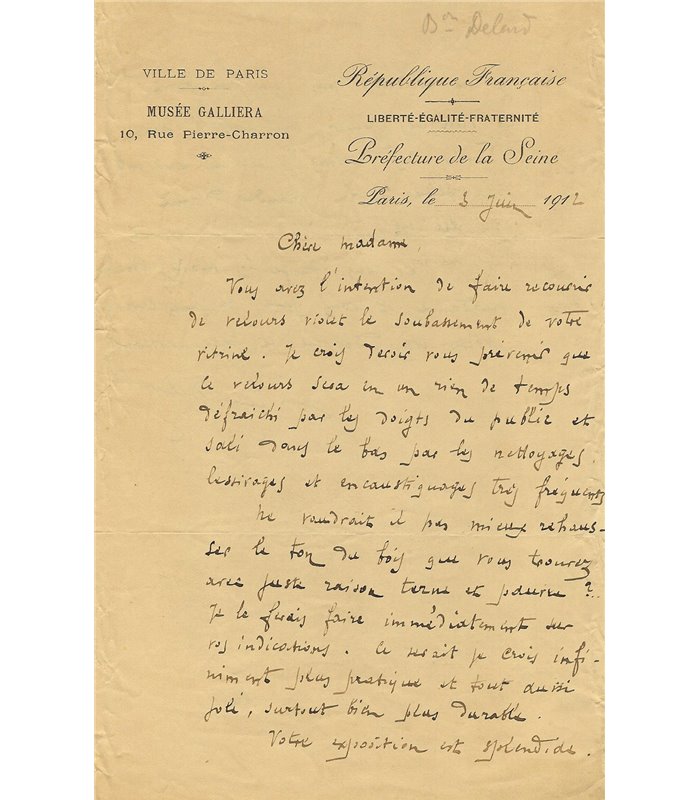 Bon Delard
VILLE DE PARIS
MUSÉE GALLIERA
10, Rue Pierre-Charron
République Française
LIBERTÉ-ÉGALITÉ-FRATERNITÉ
Préfecture de la Seine
Paris, le 3 Juin 1912
Chère madame,
Vous avez l'intention de faire recouvrir
de velours violet le soubassement de votre
vitrine. Je crois devoir vous prévenir que
ce velours sera en un rien de temps
défraichi par les doigts du public et
sali dans le bas par les nettoyages,
lessivages et encaustiquages très fréquents
Ne vaudrait il pas mieux rehaus-
ser le ton du bois que vous trouvez
avec juste raison terne et pauvre ?
Je le ferais faire immédiatement sur
vos indications. Ce serait je crois infi-
niment plus pratique et tout aussi
joli, surtout bien plus durable.
Votre exposition est splendide.